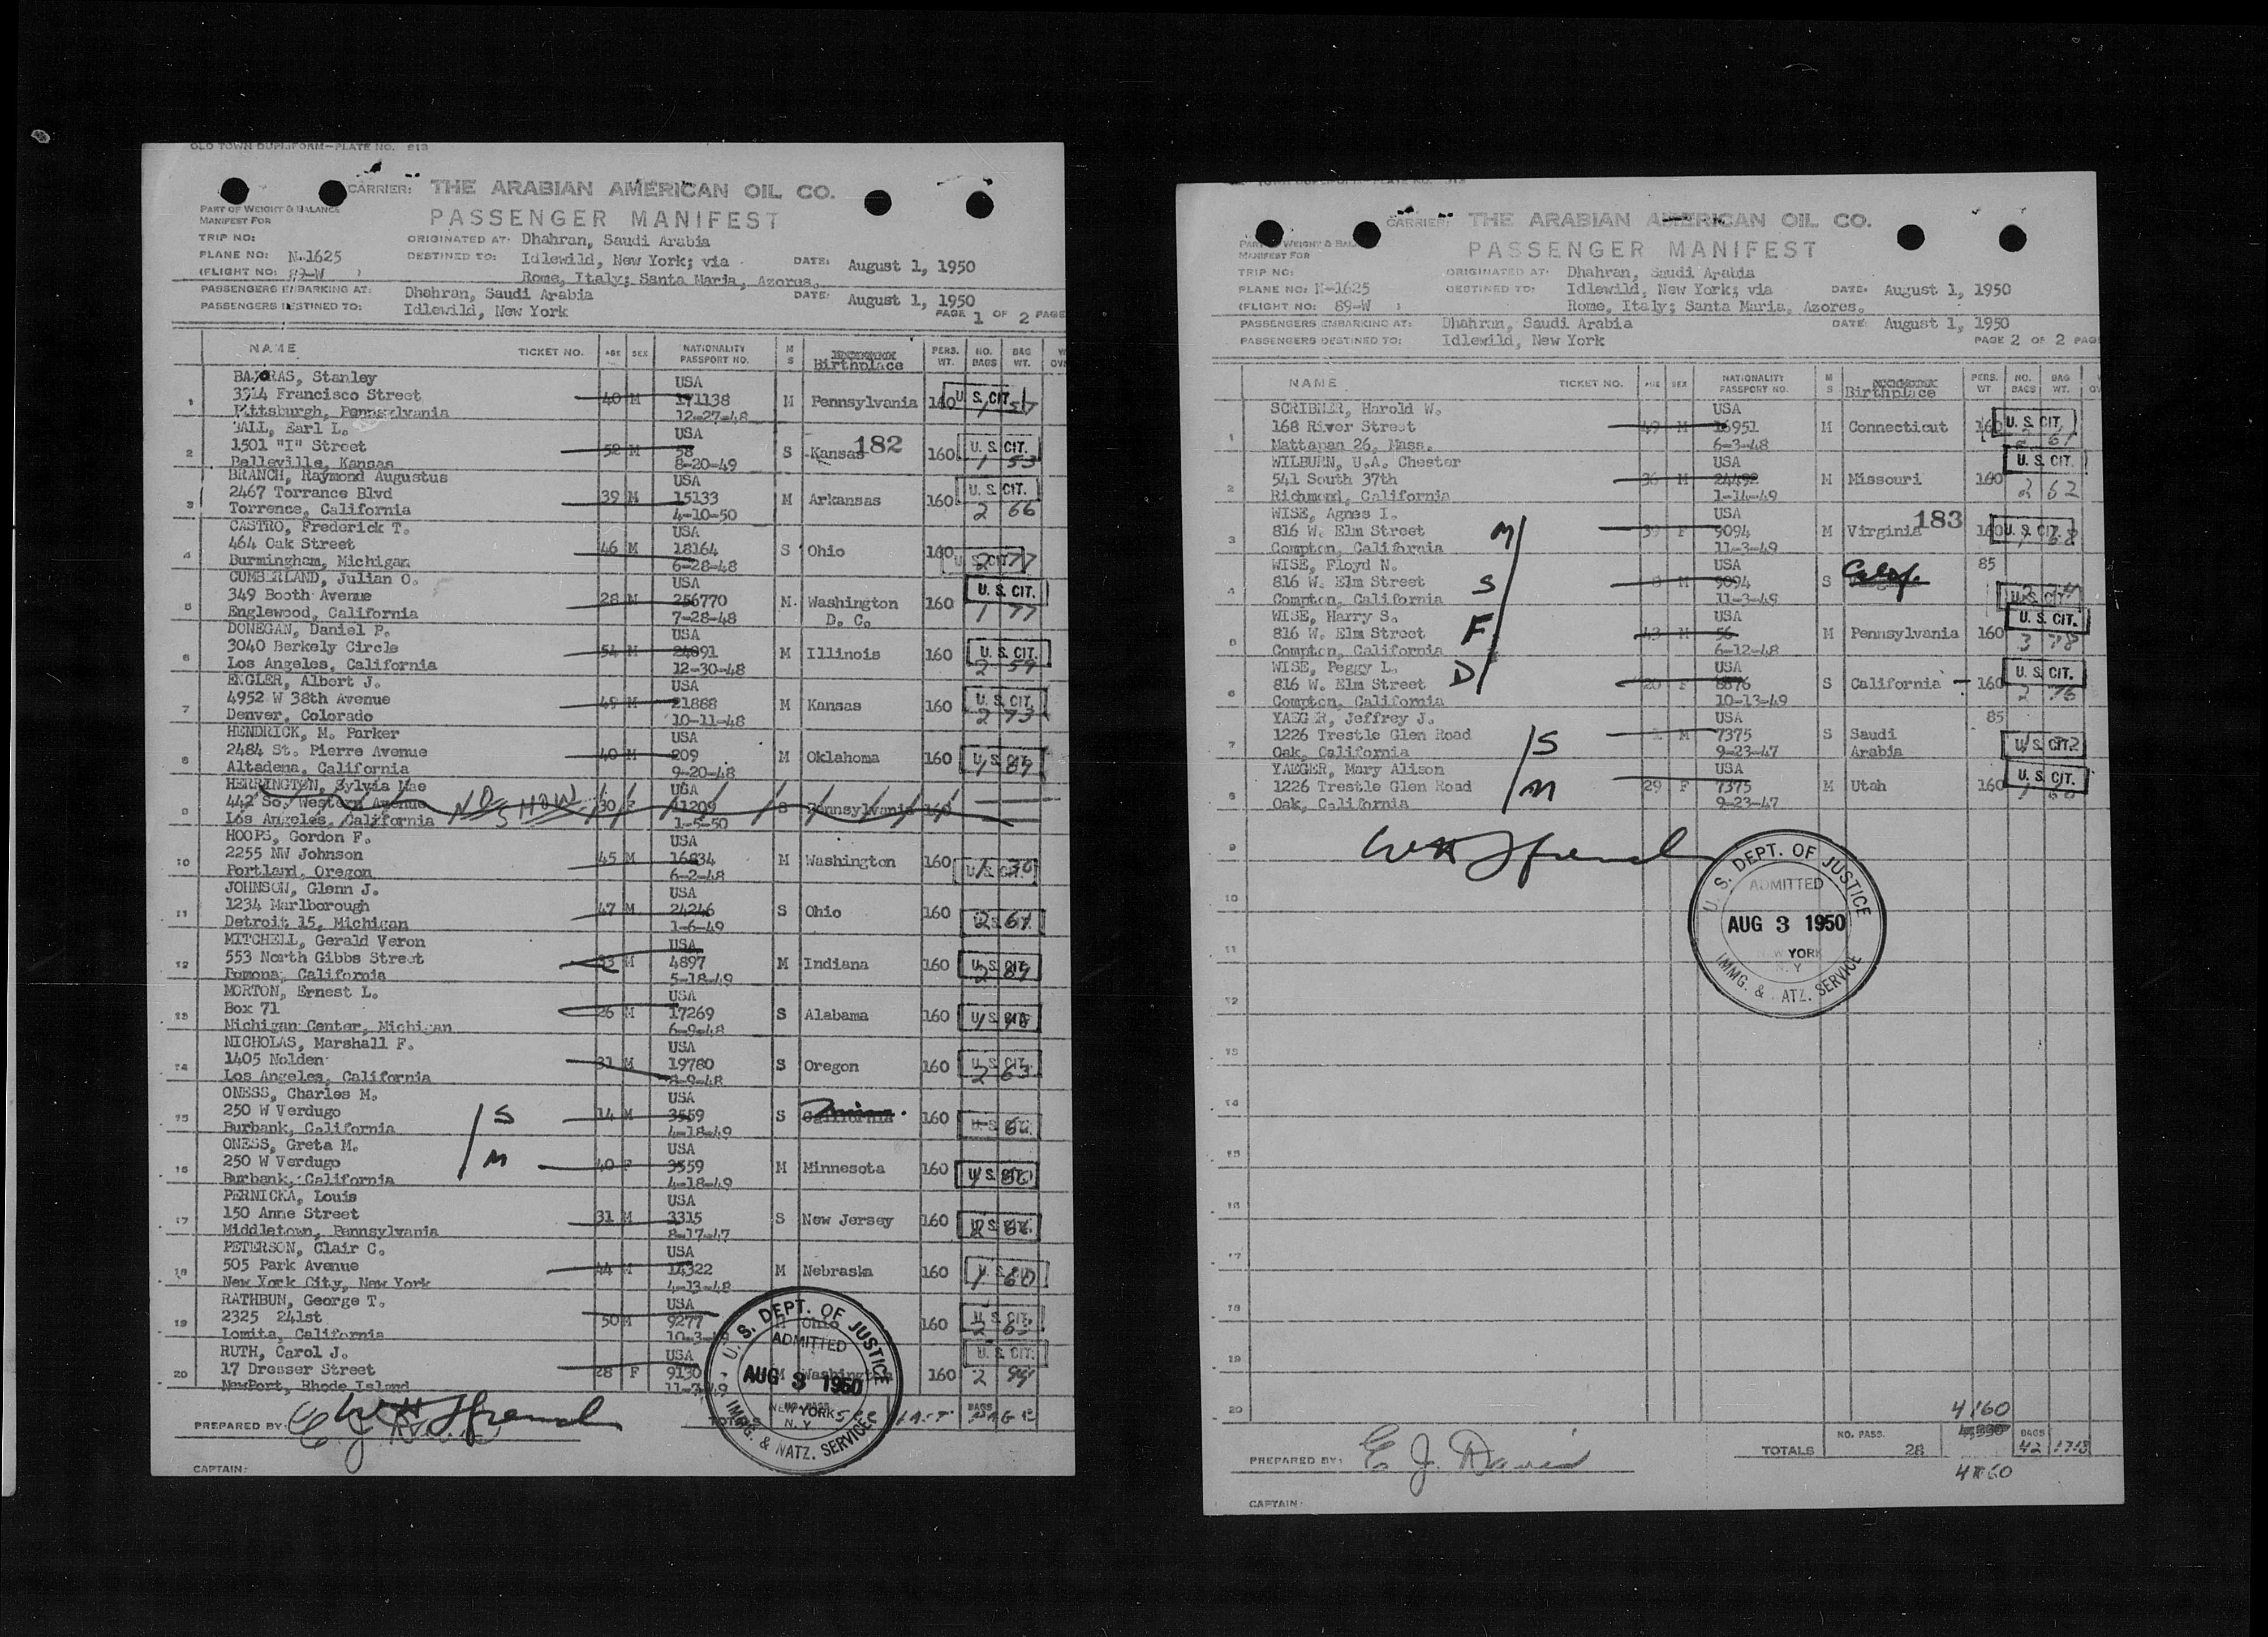 OLD TOWN DUPLIFORM—PLATE NO. 813
CARRIER: THE ARABIAN AMERICAN OIL CO.
PART OF WEIGHT & BALANCE
MANIFEST FOR
PASSENGER MANIFEST
TRIP NO: ORIGINATED AT: Dhahran, Saudi Arabia
PLANE NO: N-1625 DESTINED TO: Idlewild, New York; via DATE: August 1, 1950
(FLIGHT NO: 89-W ) Rome, Italy; Santa Maria, Azores.
PASSENGERS EMBARKING AT: Dhahran, Saudi Arabia DATE: August 1, 1950
PASSENGERS DESTINED TO: Idlewild, New York PAGE 1 OF 2 PAGE
NAME TICKET NO. AGE SEX NATIONALITY PASSPORT NO. M S Birthplace PERS. WT. NO. BAGS BAG WT.
, Stanley USA
1 3914 Francisco Street 40 M 171138 M Pennsylvania 160 U. S. CIT. 1 57
Pittsburgh, Pennsylvania 12-27-48
BALL, Earl L. USA
2 1501 "I" Street 52 M 58 S Kansas 182 160 U. S. CIT. 1 53
Belleville, Kansas 8-20-49
BRANCH, Raymond Augustus USA
3 2467 Torrance Blvd 39 M 15133 M Arkansas 160 U. S. CIT. 2 66
Torrence, California 4-10-50
CASTRO, Frederick T. USA
4 464 Oak Street 46 M 18164 S Ohio 160 U. S. CIT. 2 77
Burmingham, Michigan 6-28-48
CUMBERLAND, Julian O. USA
5 349 Booth Avenue 28 M 256770 M Washington 160 U. S. CIT. 1 77
Englewood, California 7-28-48 D. C.
DONEGAN, Daniel P. USA
6 3040 Berkely Circle 54 M 24091 M Illinois 160 U. S. CIT. 2 59
Los Angeles, California 12-30-48
ENGLER, Albert J. USA
7 4952 W 38th Avenue 49 M 21888 M Kansas 160 U. S. CIT. 2 73
Denver, Colorado 10-11-48
HENDRICK, M. Parker USA
8 2484 St. Pierre Avenue 40 M 209 M Oklahoma 160 U. S. CIT.
Altadena, California 9-20-48
HERRINGTON, Sylvia Mae USA
9 442 So. Western Avenue NO SHOW 30 F 11209 S Pennsylvania 160
Los Angeles, California 1-5-50
HOOPS, Gordon F. USA
10 2255 NW Johnson 45 M 16834 M Washington 160 U. S. CIT. 1 30
Portland, Oregon 6-2-48
JOHNSON, Glenn J. USA
11 1234 Marlborough 47 M 24246 S Ohio 160 U. S. CIT. 2 61
Detroit 15, Michigan 1-6-49
MITCHELL, Gerald Veron USA
12 553 North Gibbs Street M 4897 M Indiana 160 U. S. CIT.
Pomona, California 5-18-49
MORTON, Ernest L. USA
13 Box 71 26 M 17269 S Alabama 160 U. S. CIT.
Michigan Center, Michigan 6-9-48
NICHOLAS, Marshall F. USA
14 1405 Nolden 31 M 19780 S Oregon 160 U. S. CIT. 2 63
Los Angeles, California 8-9-48
ONESS, Charles M. USA
15 250 W Verdugo S 14 M 3559 S California 160 U. S. CIT.
Burbank, California 4-18-49
ONESS, Greta M. USA
16 250 W Verdugo M 40 F 3559 M Minnesota 160 U. S. CIT.
Burbank, California 4-18-49
PERNICKA, Louis USA
17 150 Anne Street 31 M 3315 S New Jersey 160 U. S. CIT.
Middletown, Pennsylvania 8-17-47
PETERSON, Clair C. USA
18 505 Park Avenue 44 M 14322 M Nebraska 160 U. S. CIT. 1 60
New York City, New York 4-13-48
RATHBUN, George T. USA
19 2325 241st 50 M 9277 M Ohio 160 U. S. CIT. 2 63
Lomita, California 10-3-49
RUTH, Carol J. USA U. S. CIT.
20 17 Dresser Street 28 F 9130 M Washington 160 2 44
NewPort, Rhode Island 11-7-49
U. S. DEPT. OF JUSTICE
ADMITTED
AUG 3 1950
NEW YORK
N. Y.
IMMG. & NATZ. SERVICE
PREPARED BY: E J Davis TOTALS NO. PASS. See LAST BAGS PAGE
CAPTAIN:
CARRIER: THE ARABIAN AMERICAN OIL CO.
PART OF WEIGHT & BALANCE
MANIFEST FOR
PASSENGER MANIFEST
TRIP NO: ORIGINATED AT: Dhahran, Saudi Arabia
PLANE NO: N-1625 DESTINED TO: Idlewild, New York; via DATE: August 1, 1950
(FLIGHT NO: 89-W ) Rome, Italy; Santa Maria, Azores.
PASSENGERS EMBARKING AT: Dhahran, Saudi Arabia DATE: August 1, 1950
PASSENGERS DESTINED TO: Idlewild, New York PAGE 2 OF 2 PAG
NAME TICKET NO. AGE SEX NATIONALITY PASSPORT NO. M S Birthplace PERS. WT. NO. BAGS BAG WT.
SCRIBNER, Harold W. USA
1 168 River Street 49 M 16951 M Connecticut 160 U. S. CIT. 2 61
Mattapan 26, Mass. 6-3-48
WILBURN, U.A. Chester USA U. S. CIT.
2 541 South 37th 36 M 24492 M Missouri 160 2 62
Richmond, California 1-14-49
WISE, Agnes I. USA
3 816 W. Elm Street M 39 F 9094 M Virginia 183 160 U. S. CIT. 1 68
Compton, California 11-3-49
WISE, Floyd N. USA 85
4 816 W. Elm Street S 8 M 9094 S Calif.
Compton, California 11-3-49 U. S. CIT.
WISE, Harry S. USA U. S. CIT.
5 816 W. Elm Street F 43 M 56 M Pennsylvania 160 3 78
Compton, California 6-12-48
WISE, Peggy L. USA U. S. CIT.
6 816 W. Elm Street D 20 F 8876 S California 160 2 76
Compton, California 10-13-49
YAEGER, Jeffrey J. USA 85
7 1226 Trestle Glen Road S M 7375 S Saudi
Oak, California 9-23-47 Arabia U. S. CIT.
YAEGER, Mary Alison USA U. S. CIT.
8 1226 Trestle Glen Road M 29 F 7375 M Utah 160
Oak, California 9-23-47
9
10
11
12
13
14
15
16
17
18
19
20
U. S. DEPT. OF JUSTICE
ADMITTED
AUG 3 1950
NEW YORK
N. Y
IMMG. & NATZ. SERVICE
4160
TOTALS NO. PASS. 28 BAGS 42 1713
PREPARED BY: E J. Davis 4160
CAPTAIN: